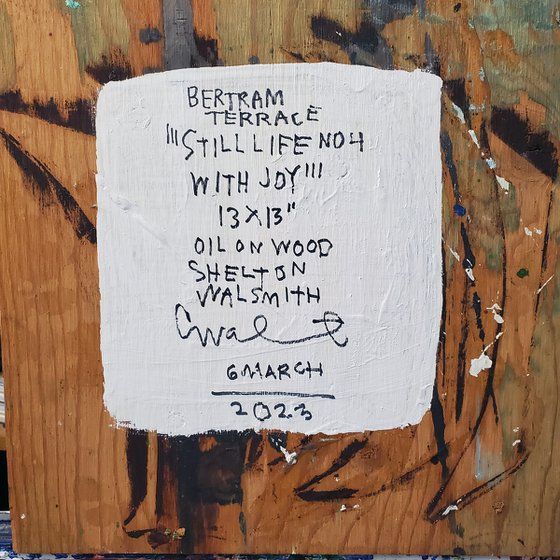 BERTRAM
TERRACE
"'STILL LIFE NO4
WITH JOY"'
13X13"
OIL ON WOOD
SHELTON
WALSMITH
6 MARCH
2023